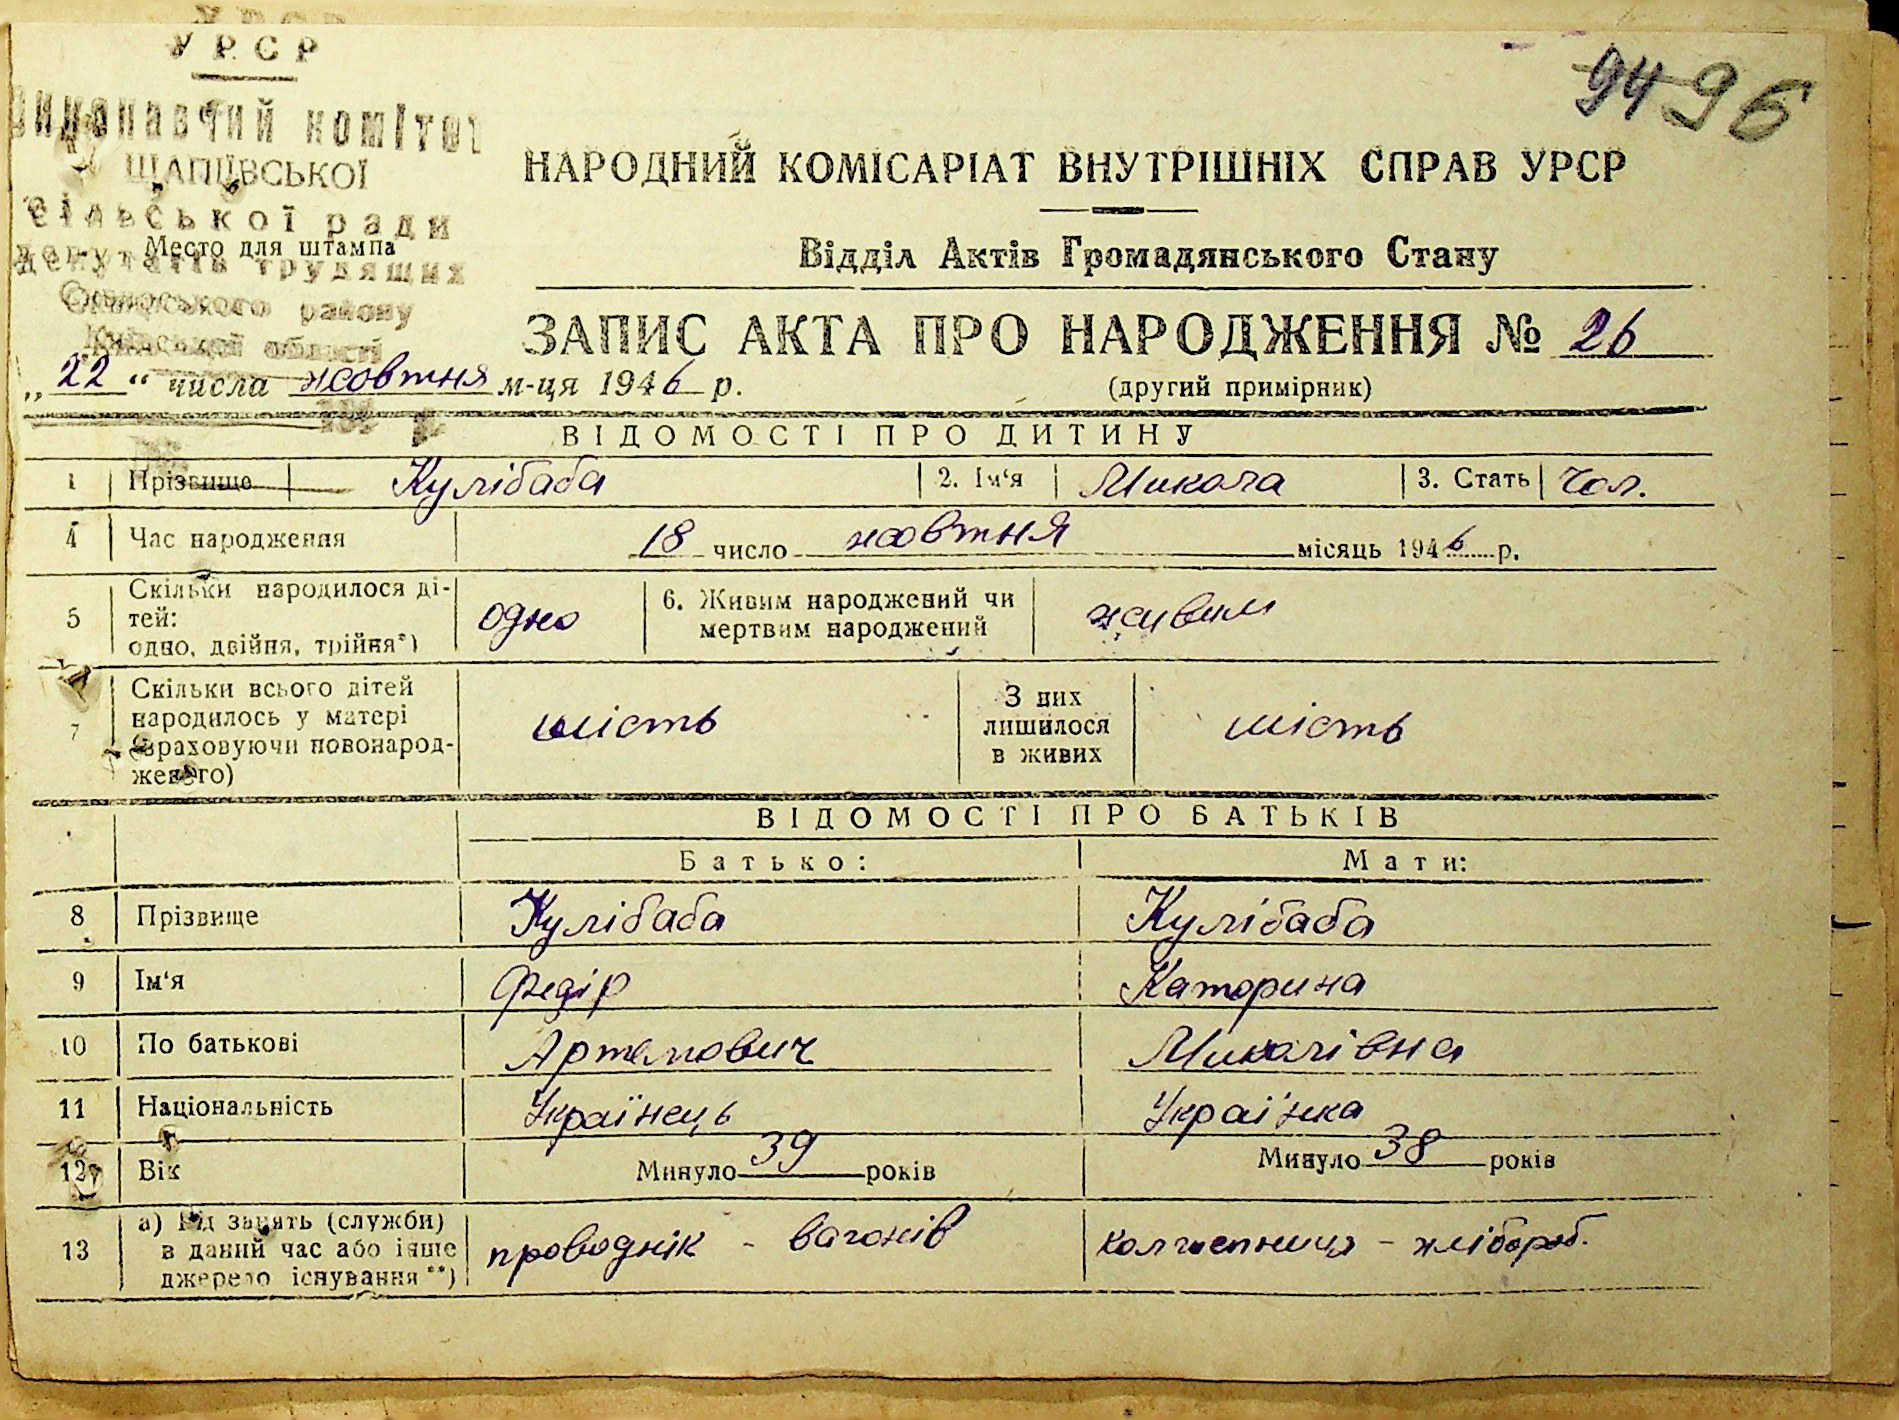 УРСР
94 96
Виконавчий комітет
ЩАПІЇВСЬКОЇ
сільської ради
Место для штампа
депутатів трудящих
Сквирського району
Київської області
НАРОДНИЙ КОМІСАРІАТ ВНУТРІШНІХ СПРАВ УРСР
Відділ Актів Громадянського Стану
ЗАПИС АКТА ПРО НАРОДЖЕННЯ № 26
(другий примірник)
„ 22 “ числа жовтня м-ця 1946 р.
ВІДОМОСТІ ПРО ДИТИНУ
1 Прізвище Кулібаба 2. Ім‘я Микола 3. Стать Чол.
4 Час народження 18 число жовтня місяць 1946 р.
5 Скільки народилося ді-
тей:
одно, двійня, трійня*) одно 6. Живим народжений чи
мертвим народжений живим
7 Скільки всього дітей
народилось у матері
(враховуючи новонарод-
женого) шість З них
лишилося
в живих шість
ВІДОМОСТІ ПРО БАТЬКІВ
Батько: Мати:
8 Прізвище Кулібаба Кулібаба
9 Ім‘я Федір Каторина
10 По батькові Артемович Миколівна
11 Національність Українець Українка
12 Вік Минуло 39 років Минуло 38 років
13 а) Рід занять (служби)
в даний час або інше
джерело існування**) проводнік - вагонів колгоспниця - хлібороб.